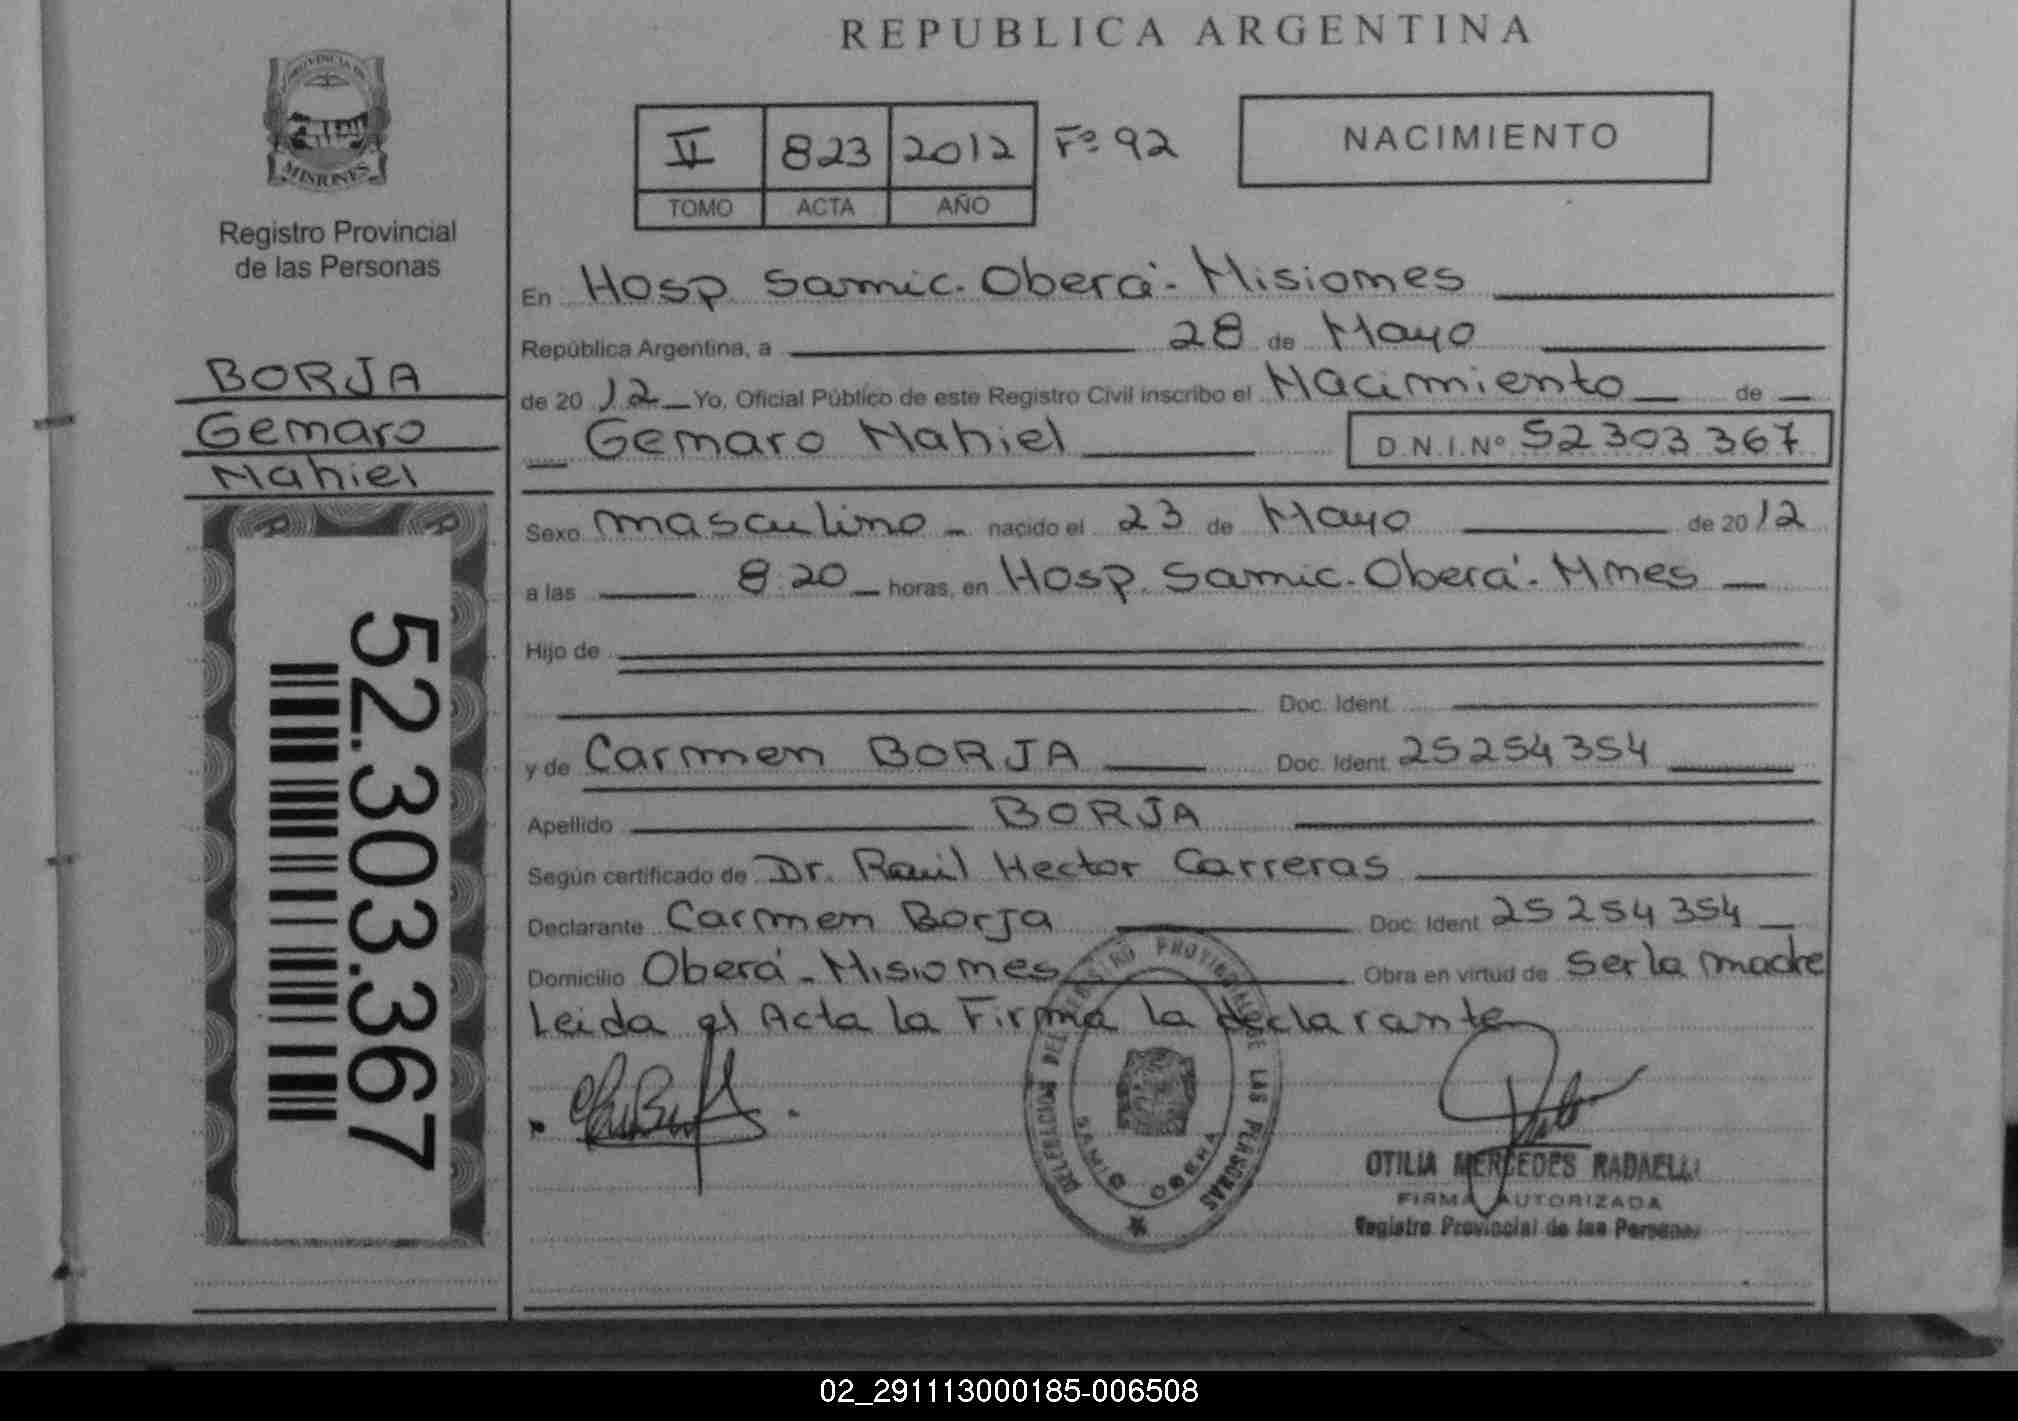 REPUBLICA ARGENTINA
PROVINCIA DE
MISIONES
Registro Provincial
de las Personas
II 823 2012 Fº 92
TOMO ACTA AÑO
NACIMIENTO
BORJA
Genaro
Nahiel
52.303.367
En Hosp. Samic. Oberá. Misiones
República Argentina, a 28 de Mayo
de 20 12 Yo, Oficial Público de este Registro Civil inscribo el Nacimiento de
Genaro Nahiel D.N.I.Nº 52303367
Sexo masculino nacido el 23 de Mayo de 20 12
a las 8:20 horas, en Hosp. Samic. Oberá. Mnes
Hijo de
Doc. Ident.
y de Carmen BORJA Doc. Ident. 25254354
Apellido BORJA
Según certificado de Dr. Raúl Hector Carreras
Declarante Carmen Borja Doc. Ident 25254354
Domicilio Oberá - Misiones Obra en virtud de ser la madre
Leida el Acta la Firma la declarante
DELEGACION DEL REGISTRO PROVINCIAL DE LAS PERSONAS
SAMIC OBERA
OTILIA MERCEDES RADAELLI
FIRMA AUTORIZADA
Registro Provincial de las Personas
02_291113000185-006508